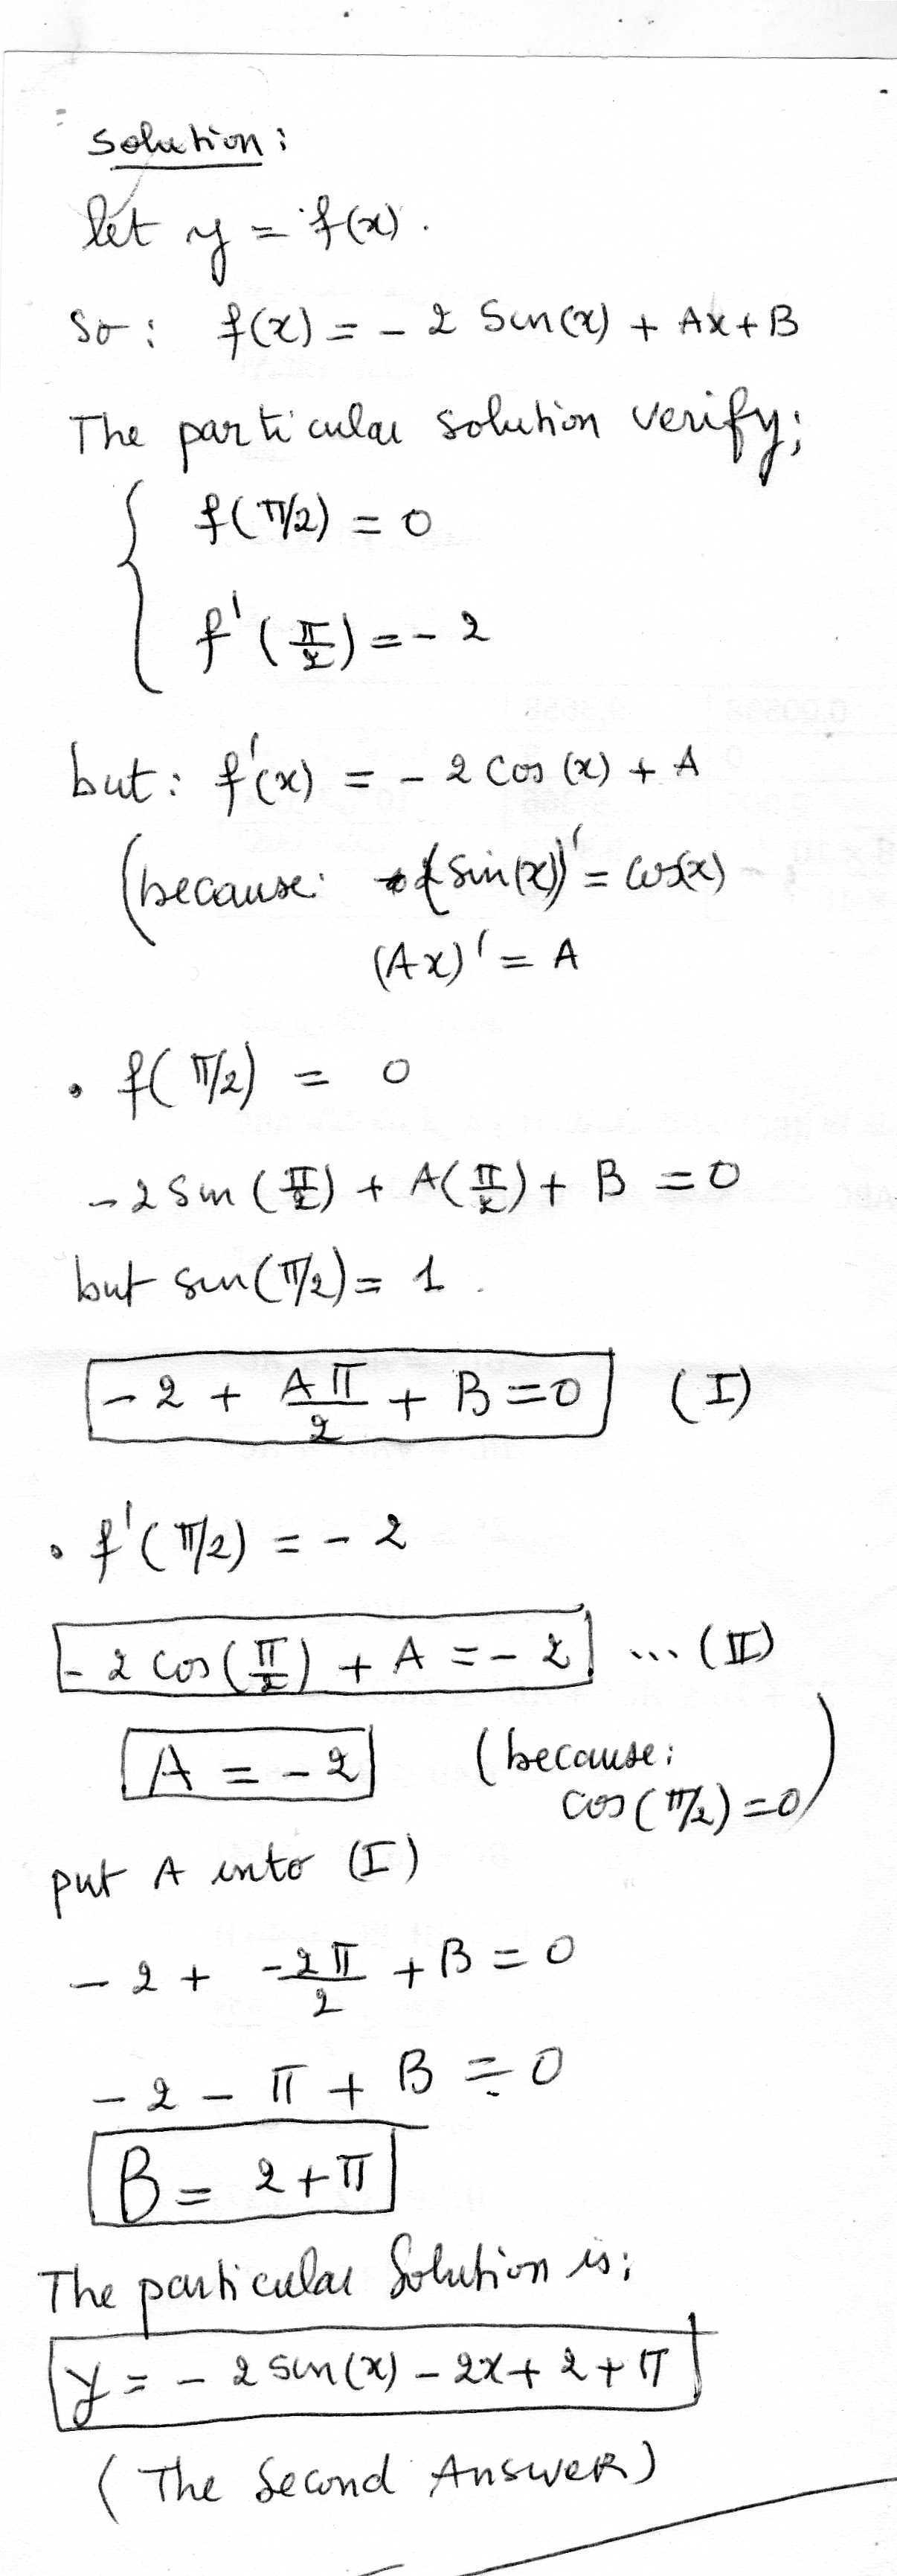 Solution:
let y = f(x).
So: f(x) = - 2 Sin(x) + Ax + B
The particular solution verify;
f(π/2) = 0
f'(π/2) = - 2
but: f'(x) = - 2 cos (x) + A
(because: (sin(x))' = cos(x)
(Ax)' = A
• f(π/2) = 0
- 2 sin (π/2) + A(π/2) + B = 0
but sin(π/2) = 1.
- 2 + Aπ/2 + B = 0 (I)
• f'(π/2) = - 2
- 2 cos(π/2) + A = - 2 ... (II)
A = - 2 (because:
cos(π/2) = 0)
put A into (I)
- 2 + -2π/2 + B = 0
- 2 - π + B = 0
B = 2 + π
The particular Solution is;
y = - 2 sin(x) - 2x + 2 + π
(The Second Answer)